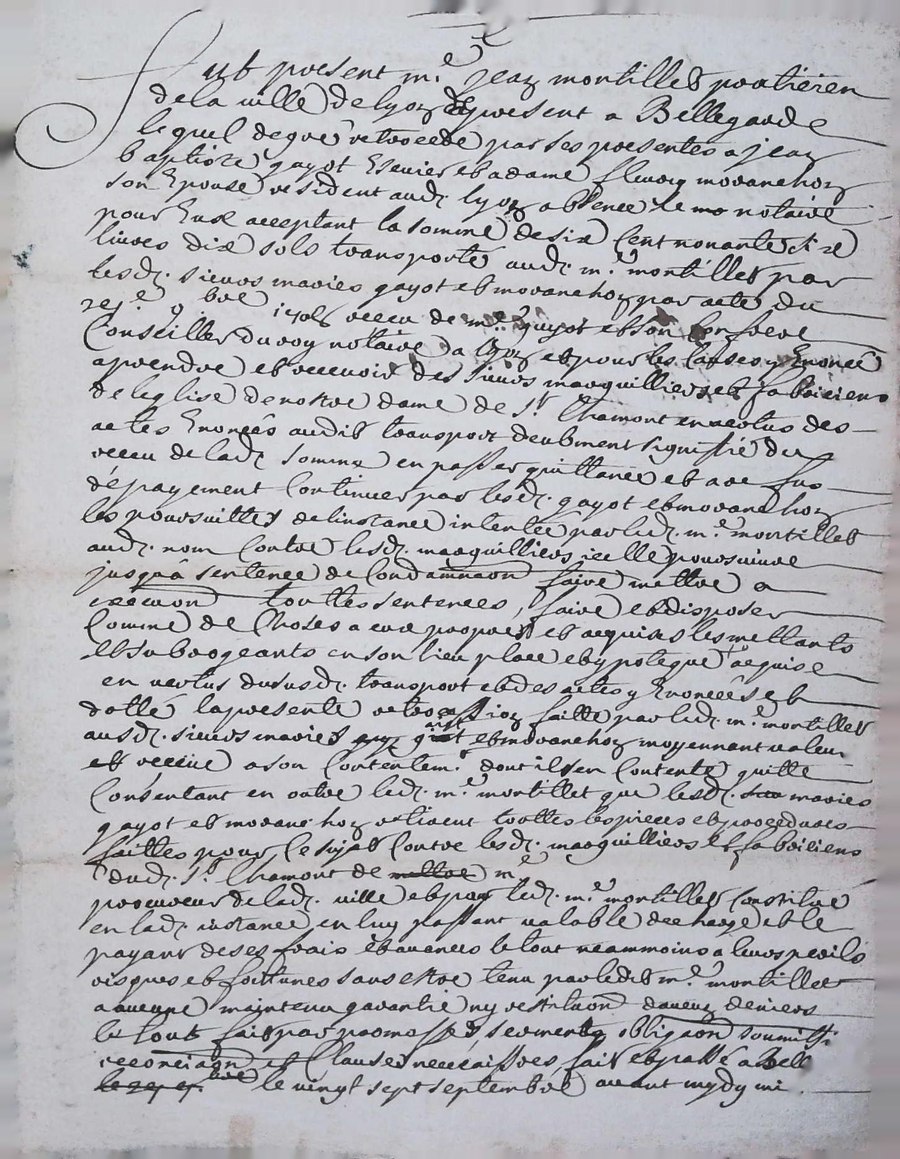 Fut present m.e jean montillet praticien
de la ville de lyon de present a Bellegarde
lequel de gré retrocede par ses presentes a jean
baptiste gayot Escuier et a dame fleurie moranchon
son Epouse resident aud. lyon absence le notaire
pour Eux acceptant la somme de six Cent nonante six
livres dix sols transporté aud. m.e montillet par
lesd. sieurs maries gayot et moranchon par acte du
receu de m.e guyot et son Confrere
Conseiller du roy notaire a lyon et pour les Causes y Enoncé
a prendre et recevoir des sieurs marguilliers et fabriciens
de leglise de nostre dame de S.t Chamont en vertus des
actes Enoncés audit transport deubment signiffié du
receu de lad. somme en passer quittance et a de fus
de payement Continuer par lesd. gayot et moranchon
les poursuittes de linstance intentée par led. m.e montillet
aud. nom Contre lesd. marguilliers icelle poursuivre
jusqu'a sentence de Condamnaon faire mettre a
execuon touttes sentences, faire et disposer
Comme de Choses a eux propres et acquises les mettants
et subrogeants en son lieu place et ypoteque acquise
en vertus dususd. transport et des actes y Enoncées et
datte la presente retrocession faitte par led. m.e montillet
ausd. sieurs maries gayot et moranchon moyennant valeur
et receüe a son Contentem.t dont il sen Contente quitte
Consentant en outre led. m.e montillet que lesd. maries
gayot et moranchon retirent touttes les pieces et procedures
faittes pour Ce sujet Contre lesd. marguilliers et fabriciens
dud. S.t Chamont de mettre m.e
procureur de lad. ville et par led. m.e montillet Constitué
en lad. instance en luy passant valable decharge et le
payant de ses frais et avances le tout neammoins a leurs perils
risques et fortunes sans estre tenu par ledit m.e montillet
a aucune maintenu garantie ny restituon daucuns deniers
le tout fait par promesses serments obligaon soumiss.
renonciaon et Clauses necessaires fait et passé a Bell
le vingt sept septembre avant mydy mi